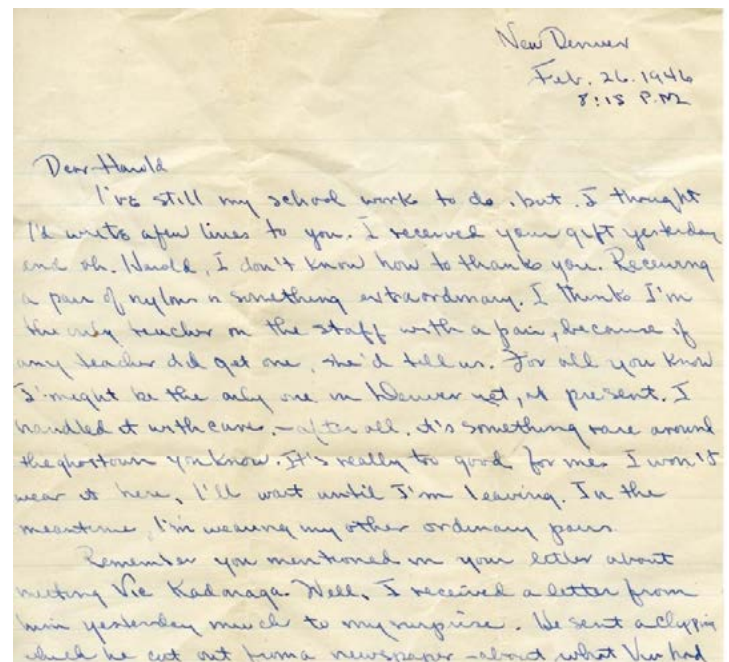 New Denver
Feb. 26. 1946
8:15 P.M.
Dear Harold
I've still my school work to do, but I thought
I'd write a few lines to you. I received your gift yesterday
and oh, Harold, I don't know how to thank you. Receiving
a pair of nylons is something extraordinary. I think I'm
the only teacher on the staff with a pair, because if
any teacher did get one, she'd tell us. For all you know
I might be the only one in Denver yet, at present. I
handled it with care, - after all, it's something rare around
the ghostown you know. It's really to good for me. I won't
wear it here, I'll wait until I'm leaving. In the
meantime, I'm wearing my other ordinary pairs.
Remember you mentioned in your letter about
meeting Vic Kadonaga. Well, I received a letter from
him yesterday much to my surprise. He sent a clipping
which he cut out from a newspaper - about what Vic had